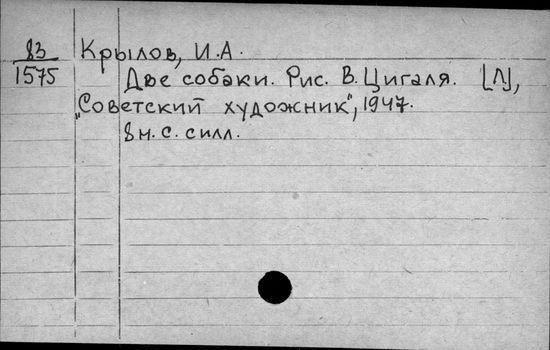 83 Крылов, И.А.
1575 Две собаки. Рис. В. Цигаля. [Л],
„Советский художник", 1947.
8н. с. силл.